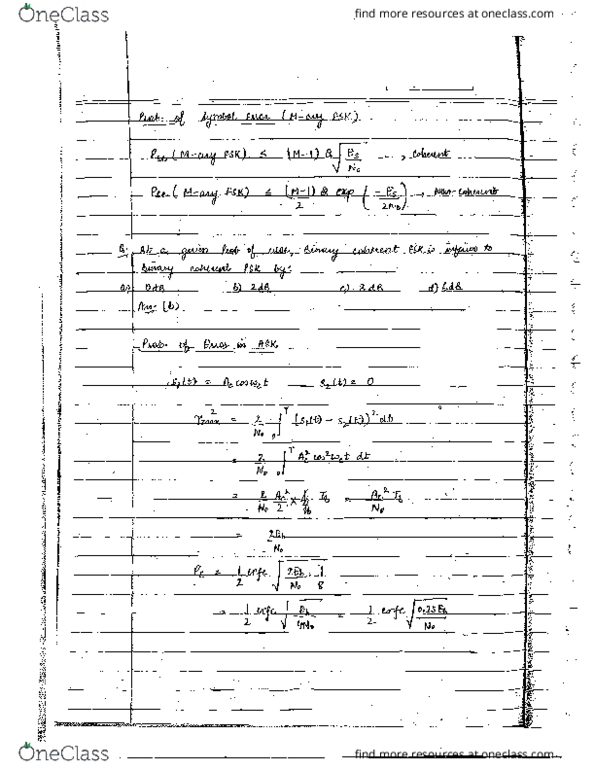 OneClass
find more resources at oneclass.com
Prob. of Symbol Error (M-ary FSK).
(M-ary FSK) ≤ (M-1) Q √(Es/N0) , coherent
(M-ary FSK) ≤ (M-1)/2 exp (-Es/2N0) → Non-coherent
Q. At a given Prob of error, Binary coherent FSK is inferior to
Binary coherent PSK by:
a) 0dB b) 2dB c) 3dB d) 6dB
Ans: (b)
Prob. of Error in ASK
s1(t) = Ac cosωct s2(t) = 0
γ²max = 2/N0 ∫0^T [s1(t) - s2(t)]² dt
= 2/N0 ∫0^T Ac² cos²ωct dt
= 2/N0 Ac²/2 Tb = Ac² Tb/N0
= 2Eb/N0
Pe = 1/2 erfc √(2Eb/N0 · 1/8)
= 1/2 erfc √(Eb/4N0) = 1/2 erfc √(0.25Eb/N0)
OneClass
find more resources at oneclass.com